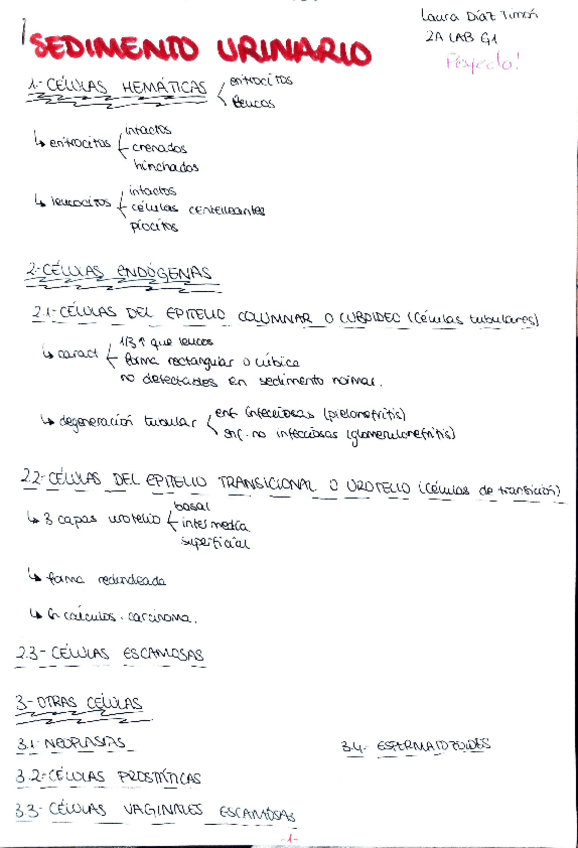 Laura Díaz Timón
2A LAB G1
Perfecto!
SEDIMENTO URINARIO
1-CÉLULAS HEMÁTICAS eritrocitos
leucos
↳ eritrocitos intactos
crenados
hinchados
↳ leucocitos intactos
células centelleantes
piocitos
2-CÉLULAS ENDÓGENAS
2.1-CÉLULAS DEL EPITELIO COLUMNAR O CUBOIDEO (Células tubulares)
↳ caract 1/3 ↑ que leucos
forma rectangular o cúbica
no detectadas en sedimento normal.
↳ degeneración tubular enf infecciosas (pielonefritis)
enf. no infecciosas (glomerulonefritis)
2.2-CÉLULAS DEL EPITELIO TRANSICIONAL O UROTELIO (Células de transición)
↳ 3 capas urotelio basal
intermedia
superficial
↳ forma redondeada
↳ En cálculos. carcinoma.
2.3-CÉLULAS ESCAMOSAS
3-OTRAS CÉLULAS
3.1-NEOPLASIAS
3.4- ESPERMATOZOIDES
3.2-CÉLULAS PROSTÁTICAS
3.3-CÉLULAS VAGINALES ESCAMOSAS
-1-